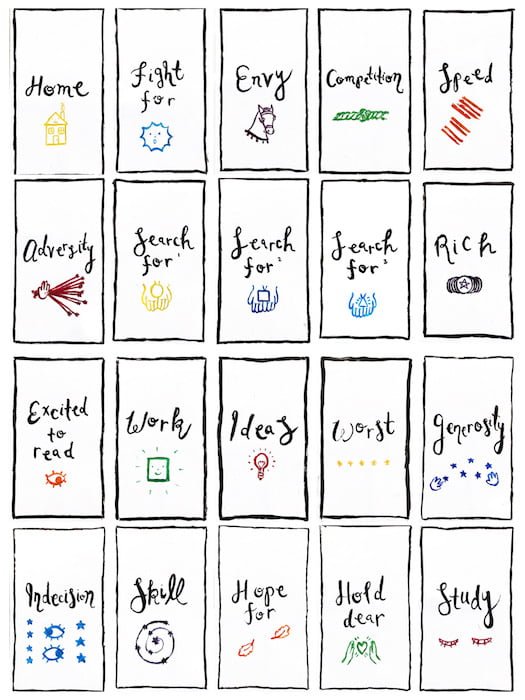 Home
Fight
for
Envy
Competition
Speed
Adversity
Search
for 1
Search
for 2
Search
for 3
Rich
Excited
to
read
Work
Ideas
Worst
Generosity
Indecision
Skill
Hope
for
Hold
dear
Study